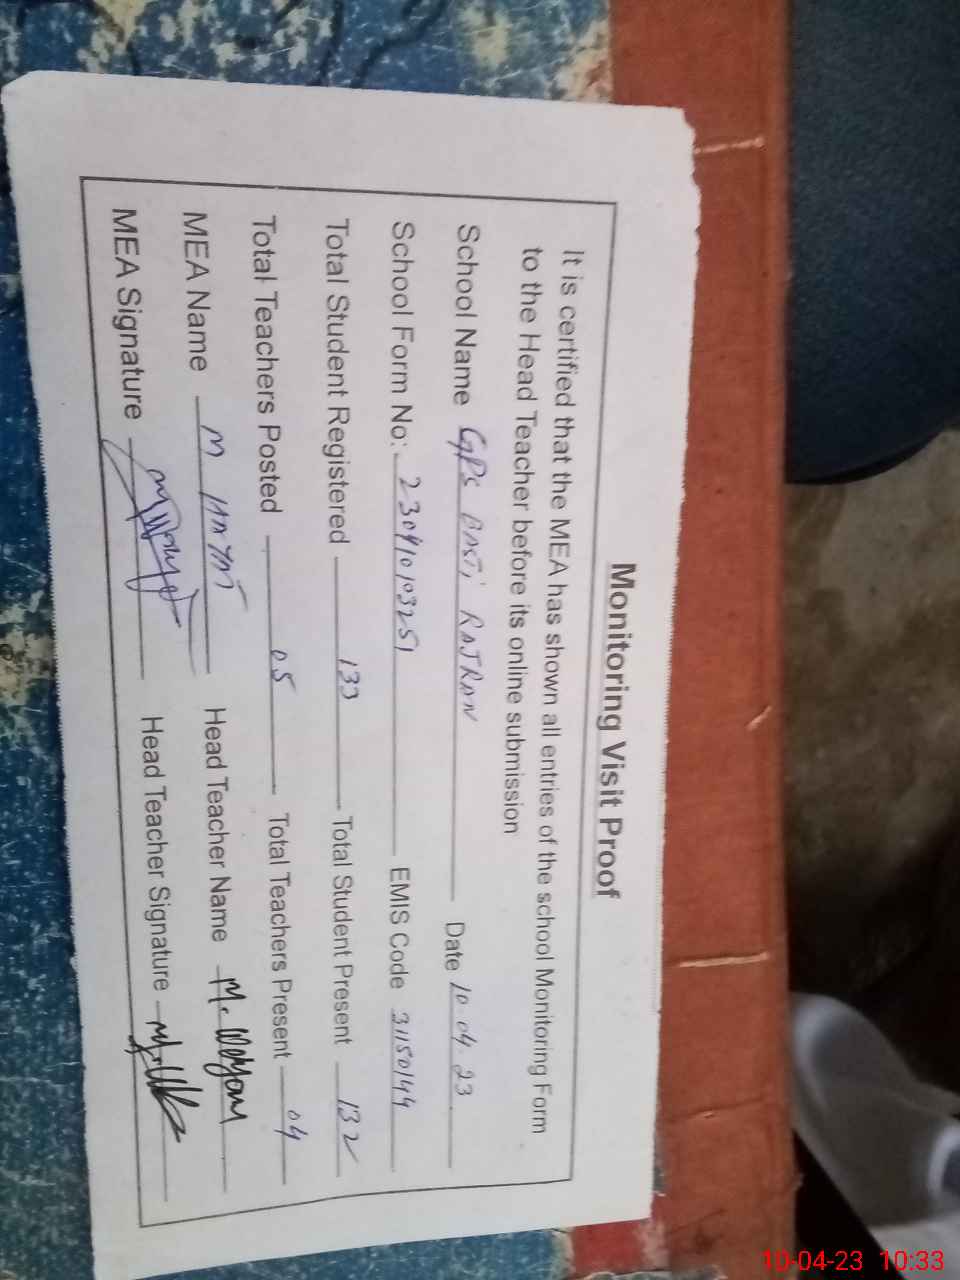 Monitoring Visit Proof
It is certified that the MEA has shown all entries of the school Monitoring Form
to the Head Teacher before its online submission
School Name GPS BASTi RAJRAN Date 10.04.23
School Form No: 230410103251 EMIS Code 31150144
Total Student Registered 133 Total Student Present 132
Total Teachers Posted 05 Total Teachers Present 04
MEA Name M Head Teacher Name M.
MEA Signature Head Teacher Signature
10-04-23 10:33